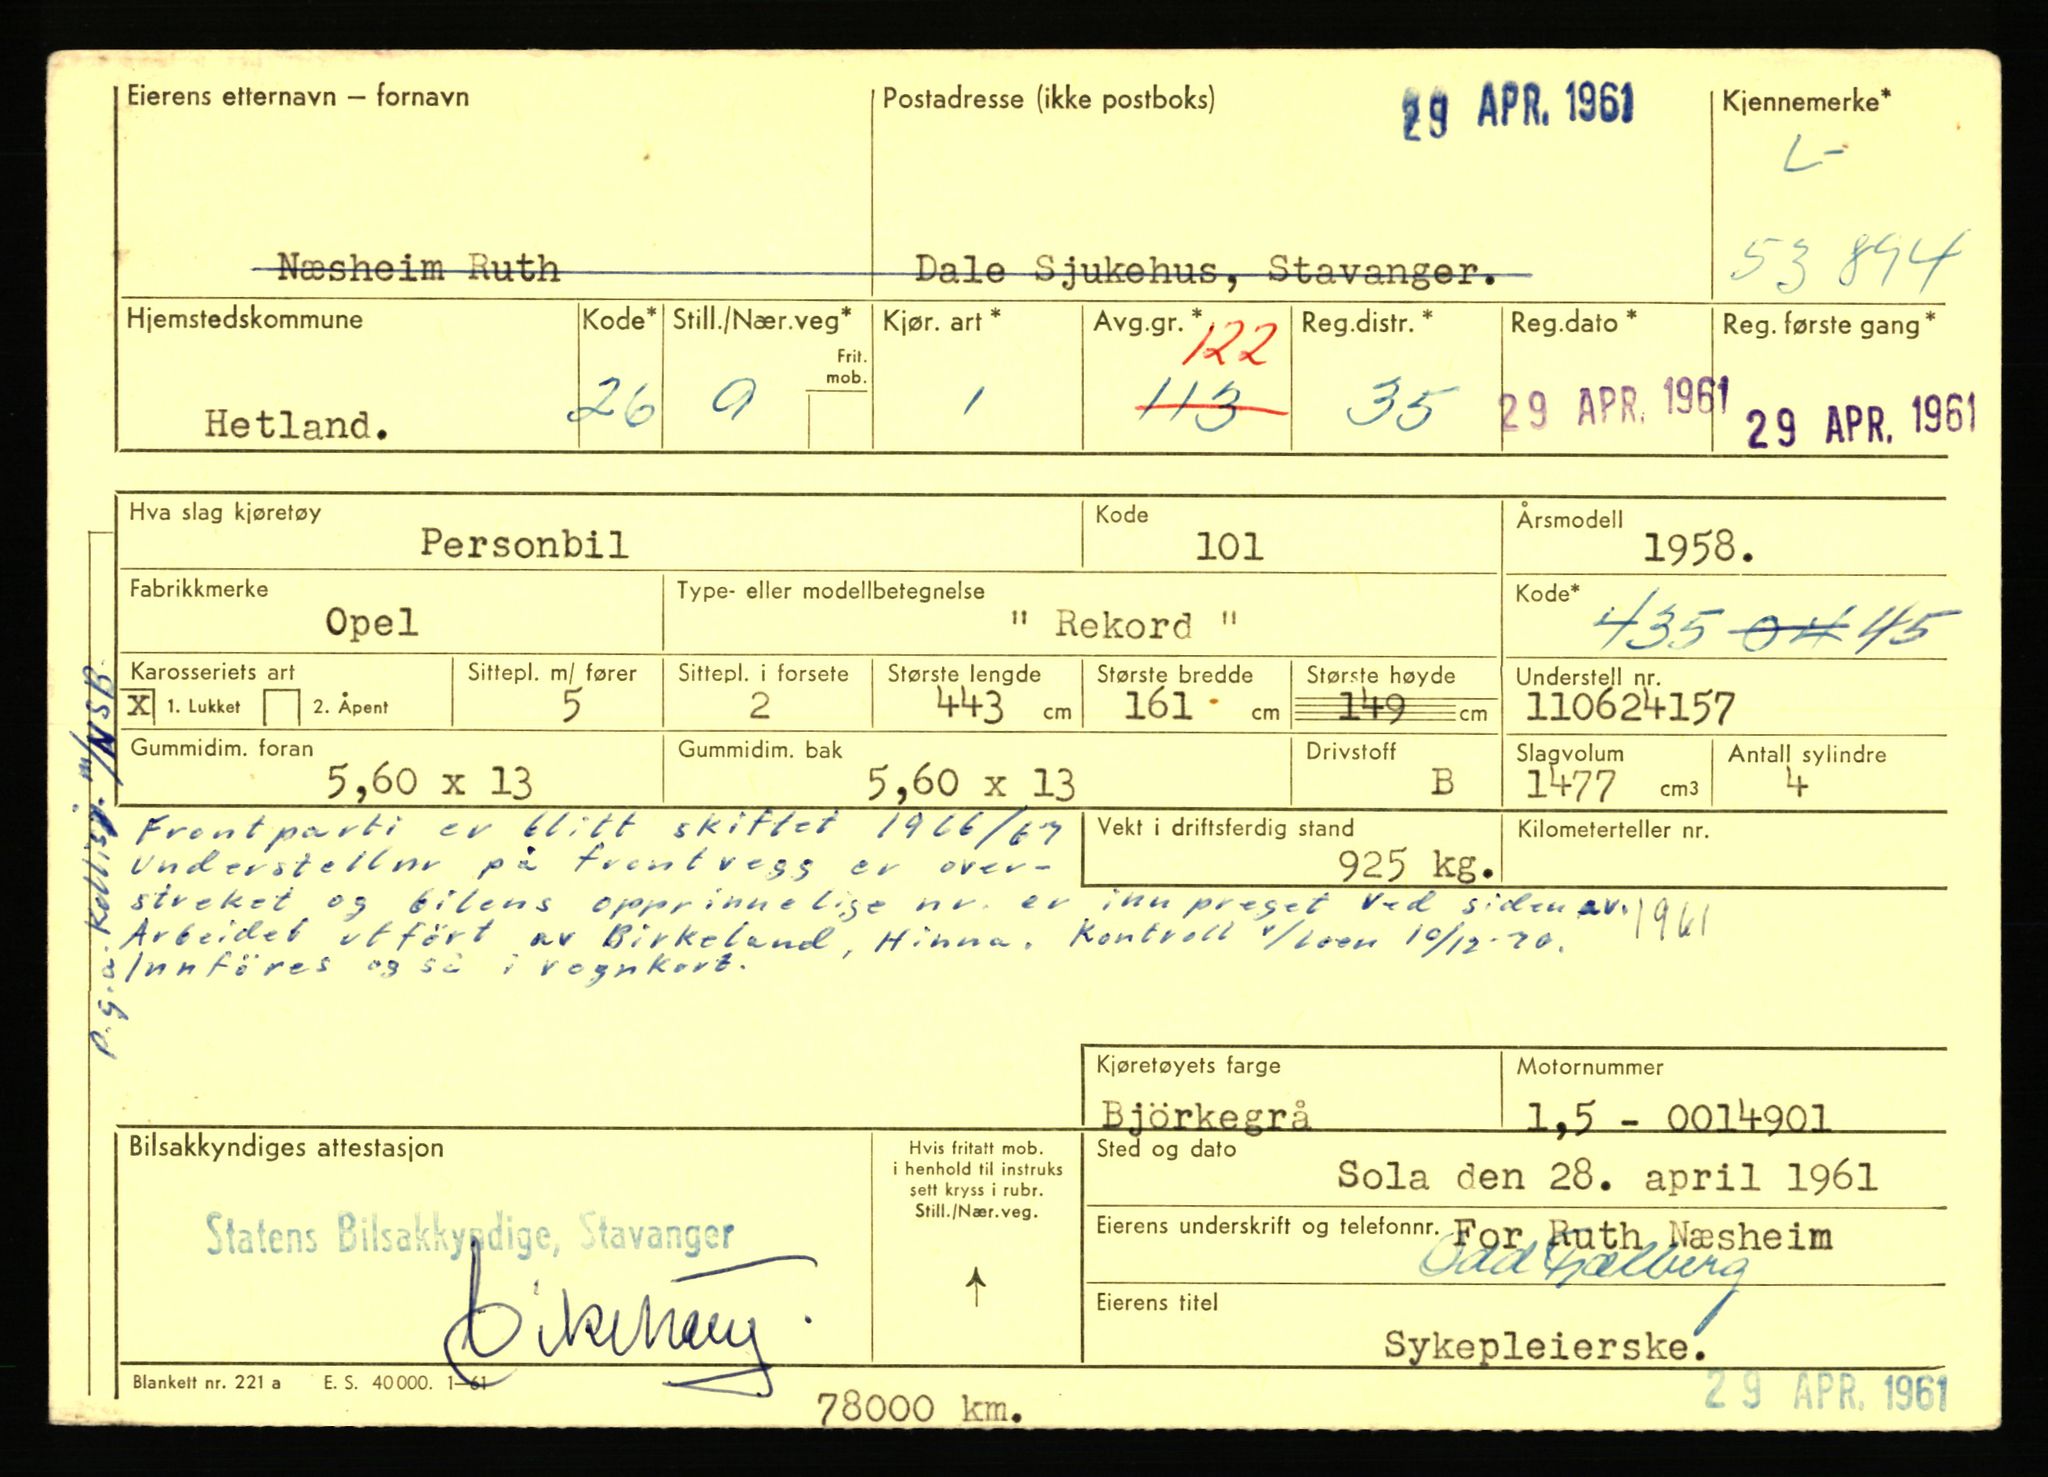 Eierens etternavn – fornavn
Postadresse (ikke postboks)
29 APR. 1961
Kjennemerke*
L-
53 894
Næsheim Ruth
Dale Sjukehus, Stavanger.
Hjemstedskommune
Kode*
Still./Nær.veg*
Frit.
mob.
Kjør. art *
Avg.gr. *
Reg.distr. *
Reg.dato *
Reg. første gang *
122
Hetland.
26
9
1
113
35
29 APR. 1961
29 APR. 1961
Hva slag kjøretøy
Personbil
Kode
101
Årsmodell
1958.
Fabrikkmerke
Opel
Type- eller modellbetegnelse
" Rekord "
Kode*
435 04 45
Karosseriets art
X 1. Lukket 2. Åpent
Sittepl. m/ fører
5
Sittepl. i forsete
2
Største lengde
443 cm
Største bredde
161 cm
Største høyde
149 cm
Understell nr.
110624157
Gummidim. foran
5,60 x 13
Gummidim. bak
5,60 x 13
Drivstoff
B
Slagvolum
1477 cm3
Antall sylindre
4
Frontparti er blitt skiftet 1966/67
Understellnr på frontvegg er over-
streket og bilens opprinnelige nr. er innpreget ved siden av.
Arbeidet utført av Birkeland, Hinna. Kontroll v/Loen 10/12-70.
Innföres også i vognkort.
p.g.a. Kollisj. m/NSB
1961
Vekt i driftsferdig stand
925 kg.
Kilometerteller nr.
Kjøretøyets farge
Björkegrå
Motornummer
1,5 - 0014901
Bilsakkyndiges attestasjon
Statens Bilsakkyndige, Stavanger
Hvis fritatt mob.
i henhold til instruks
sett kryss i rubr.
Still./Nær.veg.
Sted og dato
Sola den 28. april 1961
Eierens underskrift og telefonnr.
For Ruth Næsheim
Eierens titel
Sykepleierske.
Blankett nr. 221 a E. S. 40 000. 1–61
78000 km.
29 APR. 1961